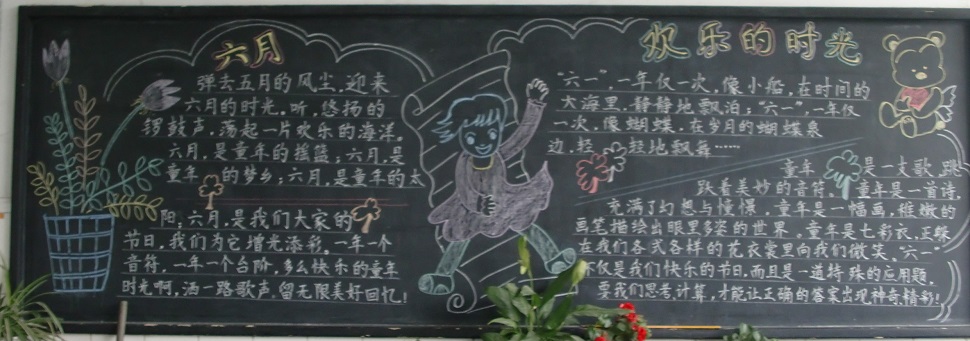 六月
弹去五月的风尘,迎来
六月的时光,听,悠扬的
锣鼓声,荡起一片欢乐的海洋。
六月,是童年的摇篮;六月,是
童年的梦乡;六月,是童年的太
阳;六月,是我们大家的
节日,我们为它增光添彩。一年一个
音符,一年一个台阶,多么快乐的童年
时光啊,洒一路歌声,留无限美好回忆!
欢乐的时光
“六一”,一年仅一次,像小船,在时间的
大海里,静静地飘泊;“六一”,一年仅
一次,像蝴蝶,在岁月的蝴蝶泉
边,轻轻地飘舞……
童年是一支歌,跳
跃着美妙的音符,童年是一首诗,
充满了幻想与憧憬,童年是一幅画,稚嫩的
画笔描绘出眼里多姿的世界。童年是七彩衣,正躲
在我们各式各样的花衣裳里向我们微笑。六一
不仅是我们快乐的节日,而且是一道特殊的应用题,
要我们思考,计算,才能让正确的答案出现神奇,精彩!